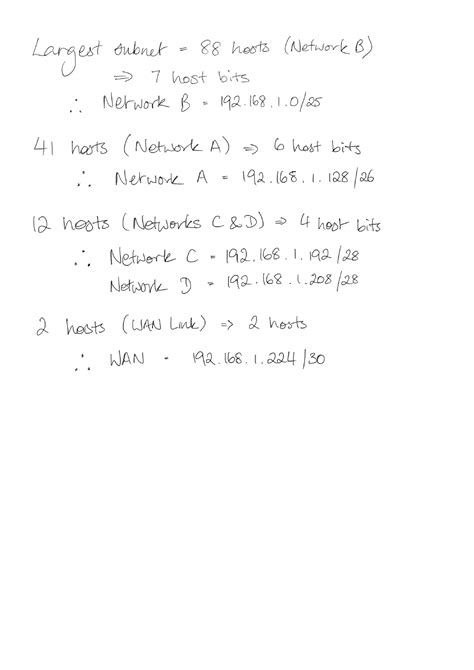 Largest subnet = 88 hosts (Network B)
⇒ 7 host bits
∴ Network B = 192.168.1.0/25
41 hosts (Network A) ⇒ 6 host bits
∴ Network A = 192.168.1.128/26
12 hosts (Networks C & D) ⇒ 4 host bits
∴ Network C = 192.168.1.192/28
Network D = 192.168.1.208/28
2 hosts (WAN Link) ⇒ 2 hosts
∴ WAN - 192.168.1.224/30